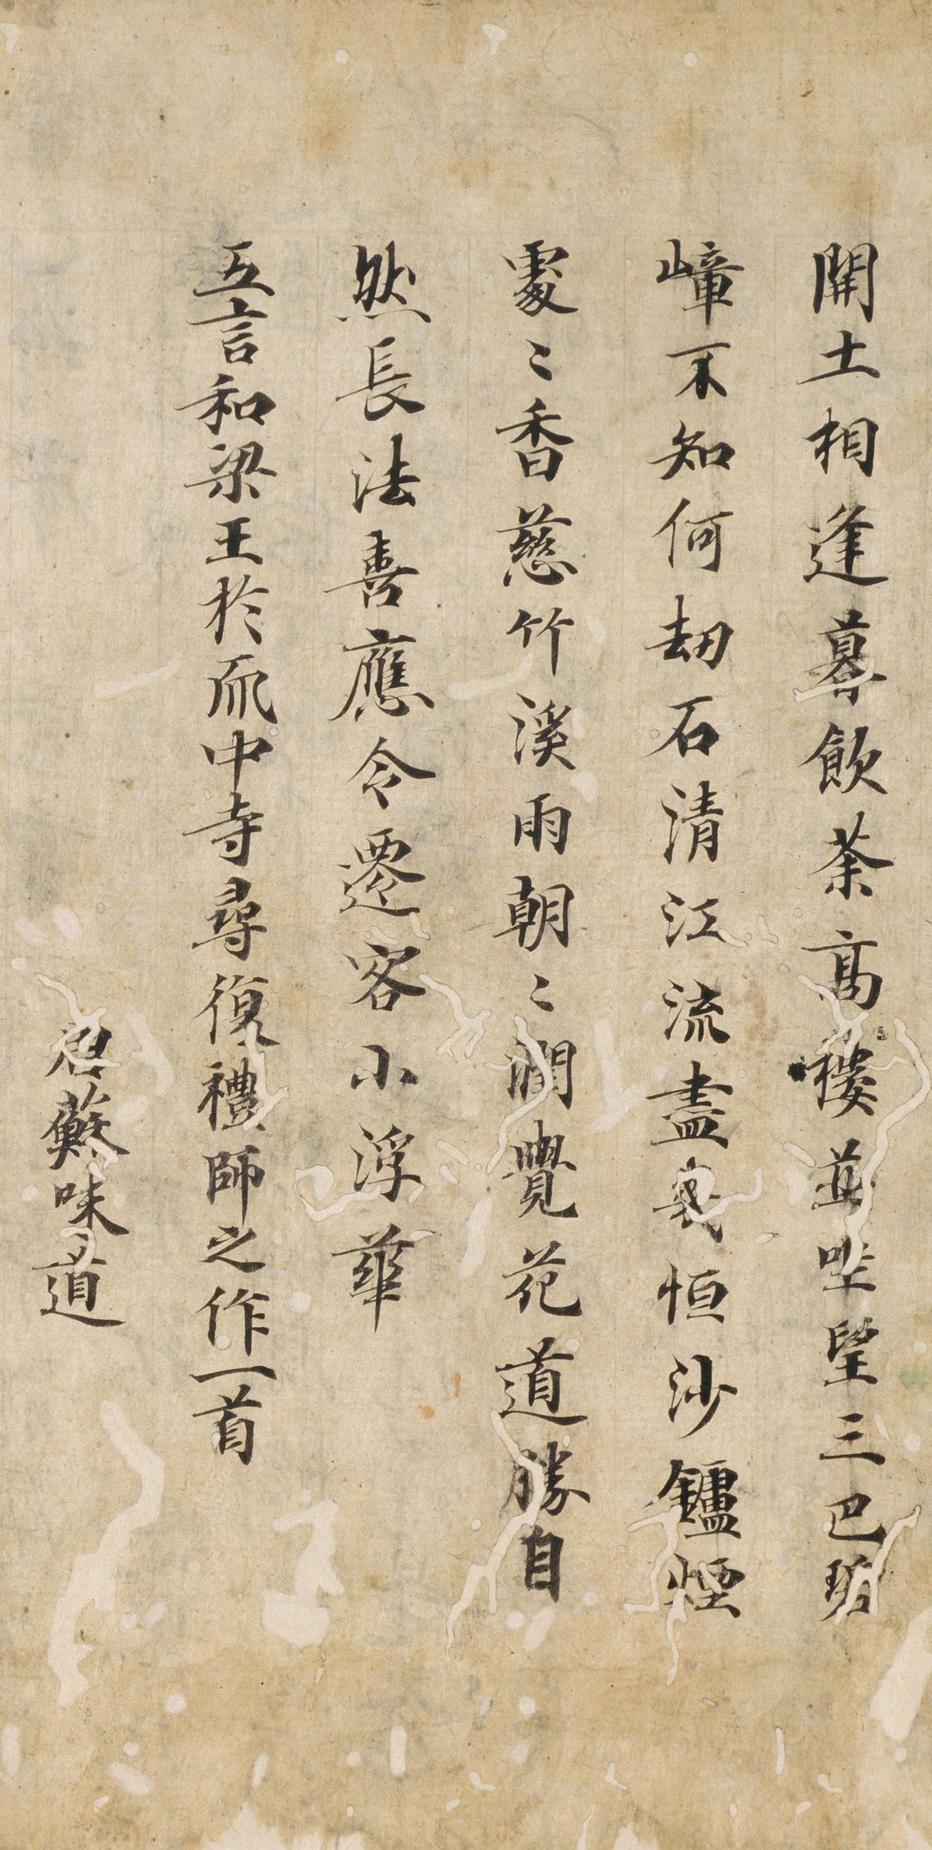 開土相逢暮飲茶高樓並坐望三巴
嶂不知何劫石清江流盡幾恒沙鑪煙
處〻香慈竹溪雨朝〻潤覺花道勝自
然長法喜應令遷客小浮華
五言和梁王於中寺尋復禮師之作一首
蘇味道